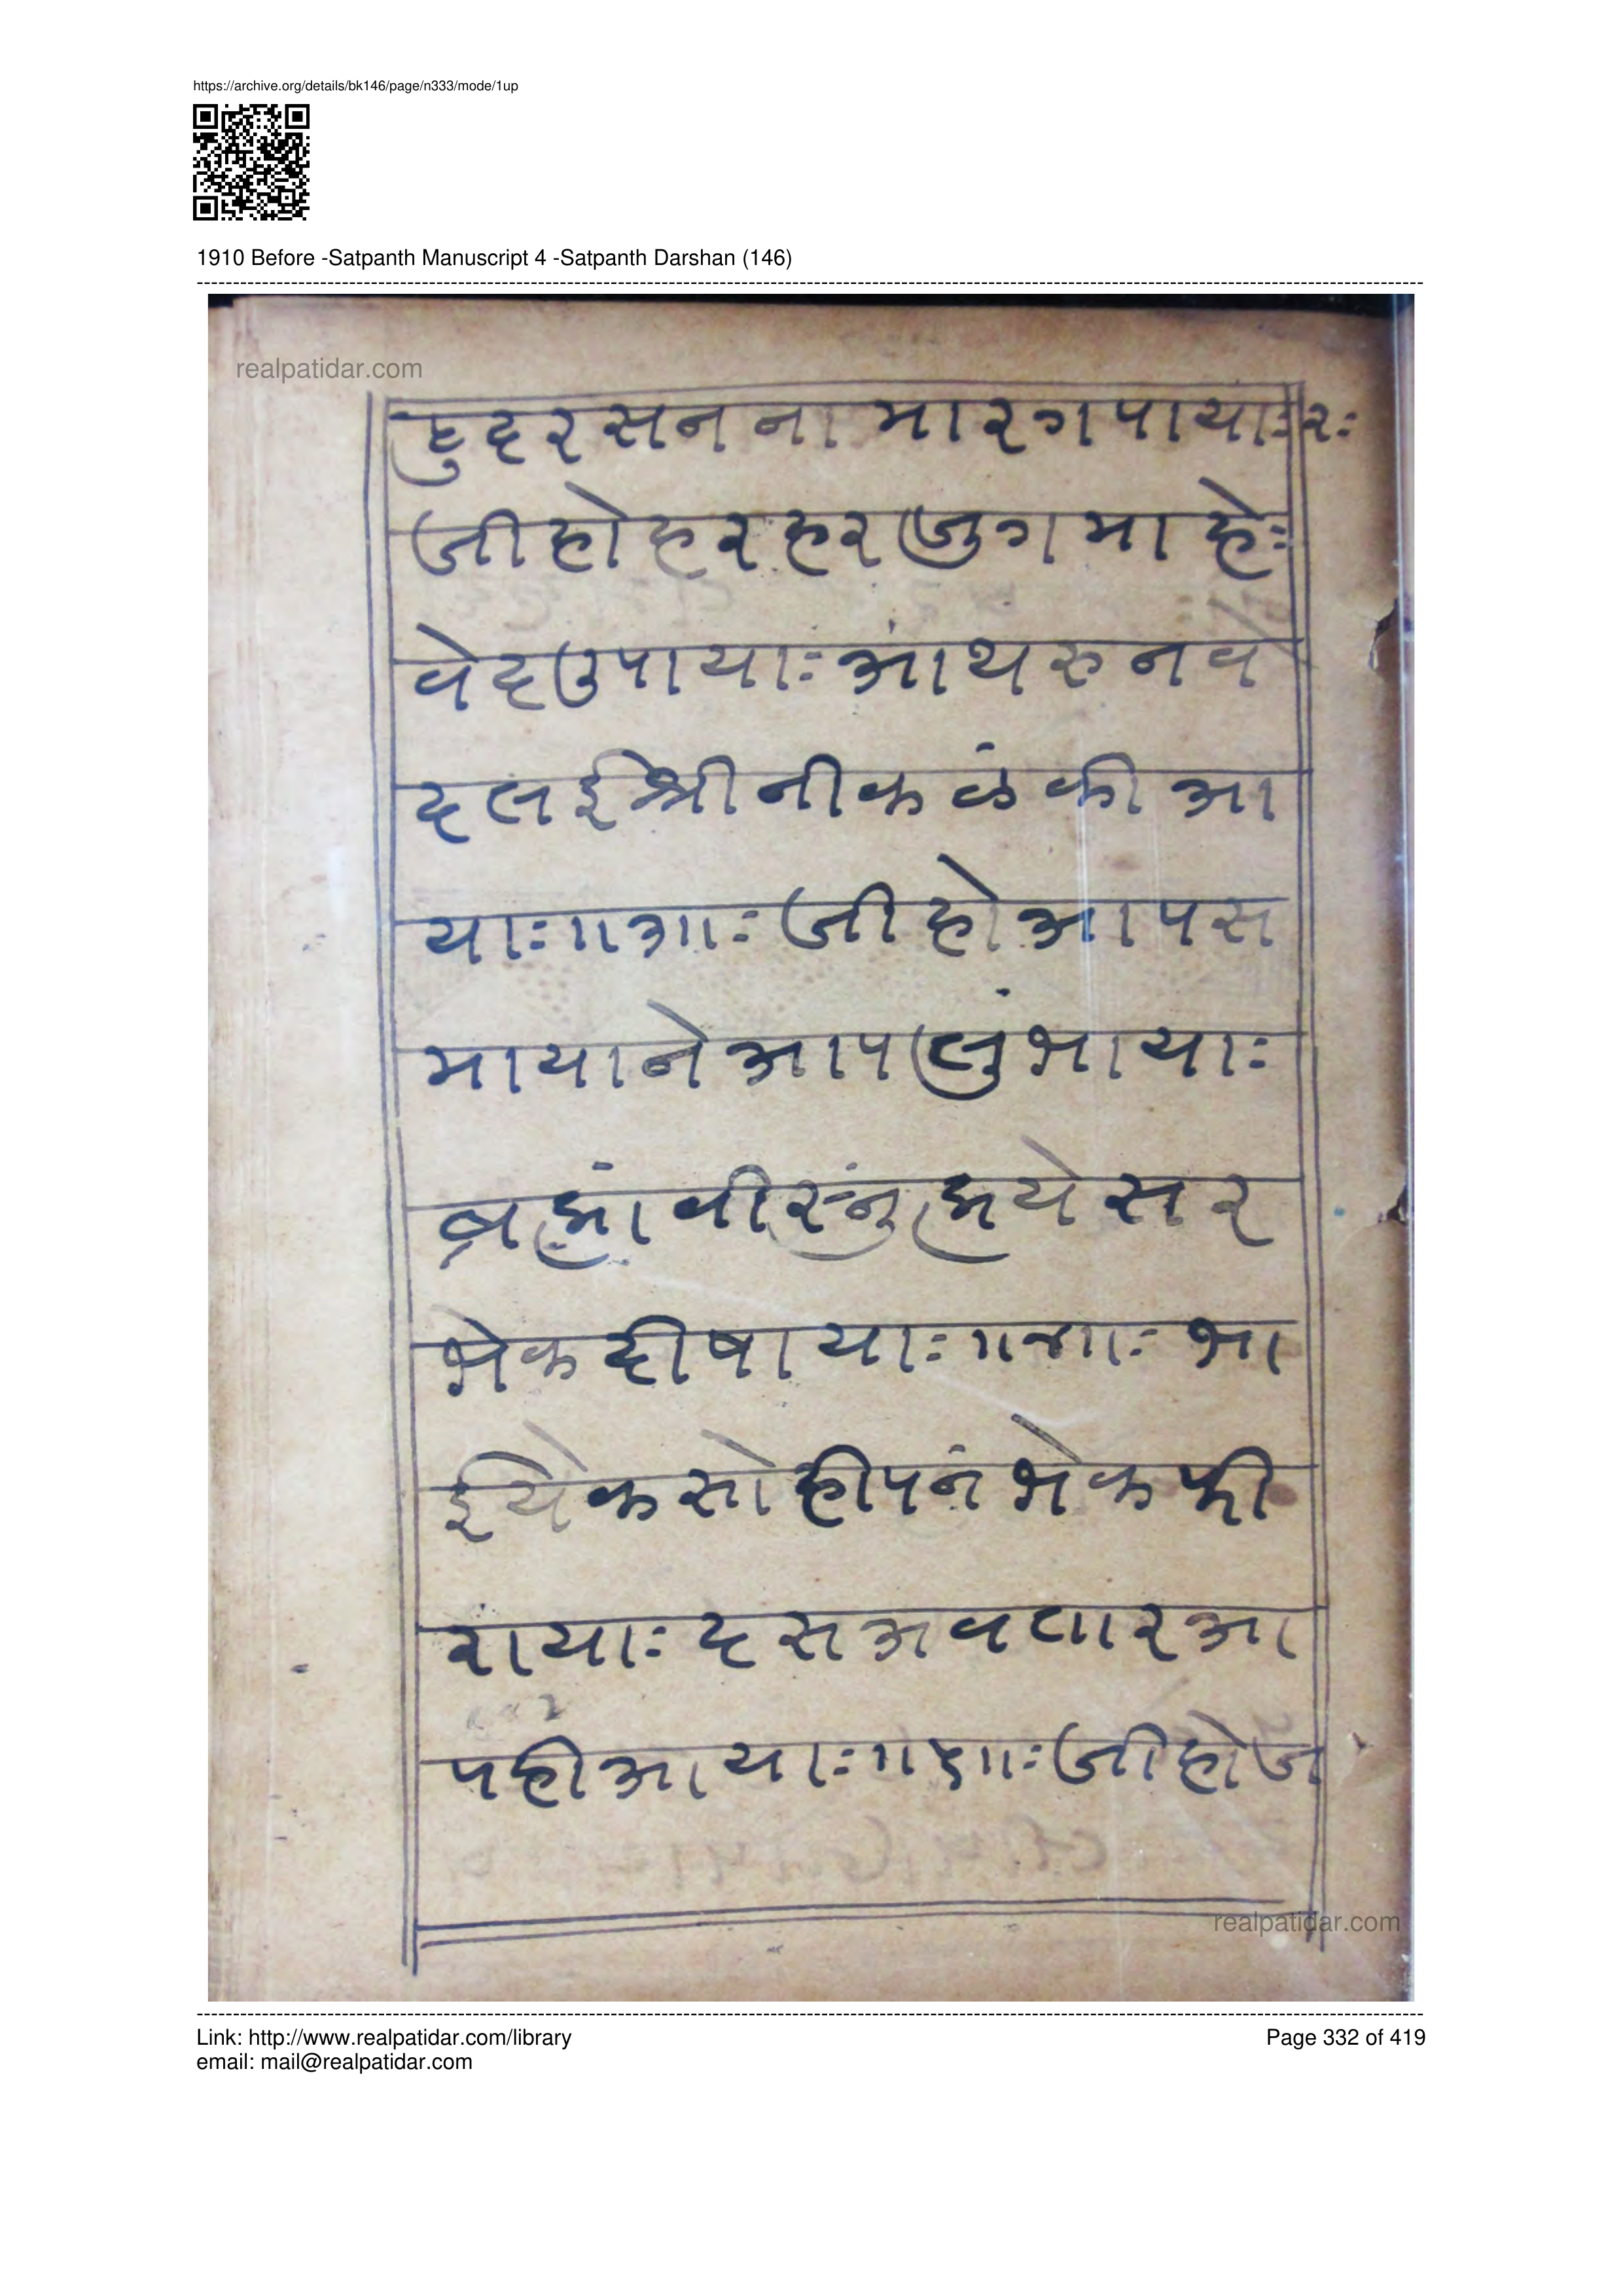 https://archive.org/details/bk146/page/n333/mode/1up
1910 Before -Satpanth Manuscript 4 -Satpanth Darshan (146)
realpatidar.com
दरसन ना मारग पायाः रः
जी हो हर हर जुग माहेः
वेद उपायाः आंथरु नव
दल ई श्री नीकळंकी आ
याः ॥३॥ः जी हो आप स
माया ने आप लुंभायाः
ब्रह्मां वीस्नुं ह्मयेसर
भेक दीषायाः ॥४॥ः भा
ई येक सोही पनं भेक फी
रायाः दस अवतार आ
पही आयाः ॥५॥ः जी हो ज
realpatidar.com
Link: http://www.realpatidar.com/library
Page 332 of 419
email: mail@realpatidar.com